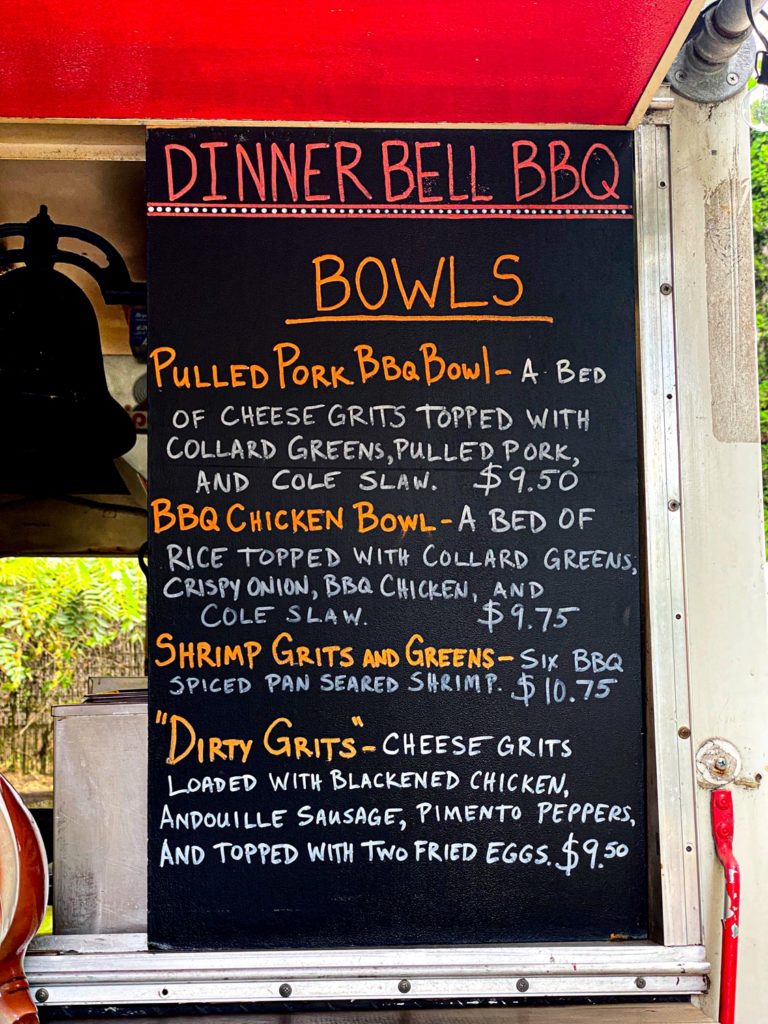 DINNER BELL BBQ
BOWLS
PULLED PORK BBQ BOWL - A BED
OF CHEESE GRITS TOPPED WITH
COLLARD GREENS, PULLED PORK,
AND COLE SLAW. $9.50
BBQ CHICKEN BOWL - A BED OF
RICE TOPPED WITH COLLARD GREENS,
CRISPY ONION, BBQ CHICKEN, AND
COLE SLAW. $9.75
SHRIMP GRITS AND GREENS - SIX BBQ
SPICED PAN SEARED SHRIMP. $10.75
"DIRTY GRITS" - CHEESE GRITS
LOADED WITH BLACKENED CHICKEN,
ANDOUILLE SAUSAGE, PIMENTO PEPPERS,
AND TOPPED WITH TWO FRIED EGGS. $9.50